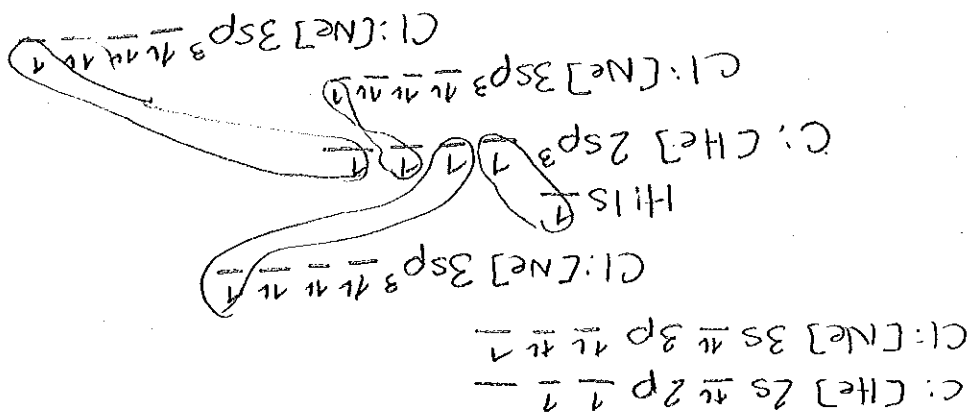 C: [He] 2s ↿⇂ 2p ↿ ↿ _
Cl: [Ne] 3s ↿⇂ 3p ↿⇂ ↿⇂ ↿
Cl: [Ne] 3sp³ ↿⇂ ↿⇂ ↿⇂ ↿
H: 1s ↿
C: [He] 2sp³ ↿ ↿ ↿ ↿
Cl: [Ne] 3sp³ ↿⇂ ↿⇂ ↿⇂ ↿
Cl: [Ne] 3sp³ ↿⇂ ↿⇂ ↿⇂ ↿